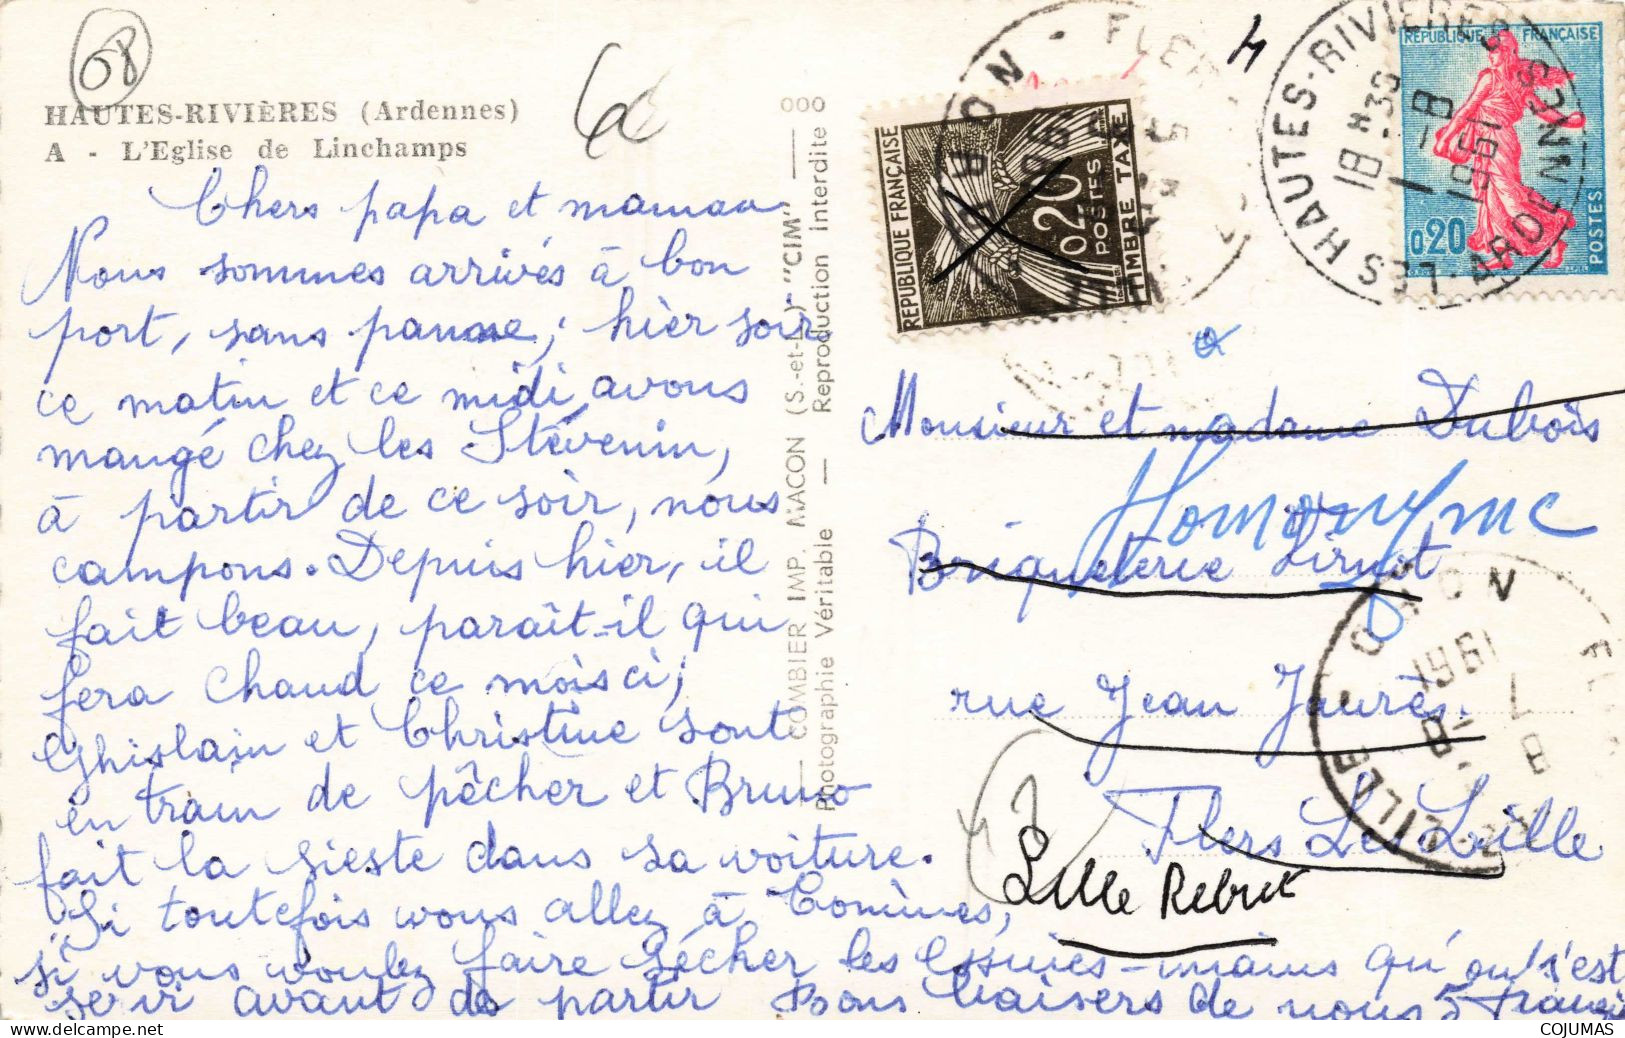 08
HAUTES-RIVIÈRES (Ardennes)
A - L'Eglise de Linchamps
Chers papa et maman
Nous sommes arrivés à bon
port, sans panne; hier soir
ce matin et ce midi, avons
mangé chez les Stévenin,
à partir de ce soir, nous
campons. Depuis hier, il
fait beau, paraît-il qui
fera chaud ce mois ci;
Ghislain et Christine sont
en train de pêcher et Bruno
fait la sieste dans sa voiture.
Si toutefois vous allez à Comines,
si vous voulez faire sécher les essuies-mains qu'on s'est
servi avant de partir Bons baisers de nous 5
COMBIER IMP. MACON (S.-et-L.) "CIM"
Photographie Véritable — Reproduction Interdite
000
RÉPUBLIQUE FRANÇAISE
0,20
POSTES
TIMBRE TAXE
4
LES HAUTES-RIVIERES
ARDENNES
18 H 30
1 - 8
1961
RÉPUBLIQUE FRANÇAISE
0,20
POSTES
Monsieur et madame Dubois
Homonyme
Briqueterie
rue Jean Jaurès.
Flers Les Lille
Lille Rebut
1961
COJUMAS